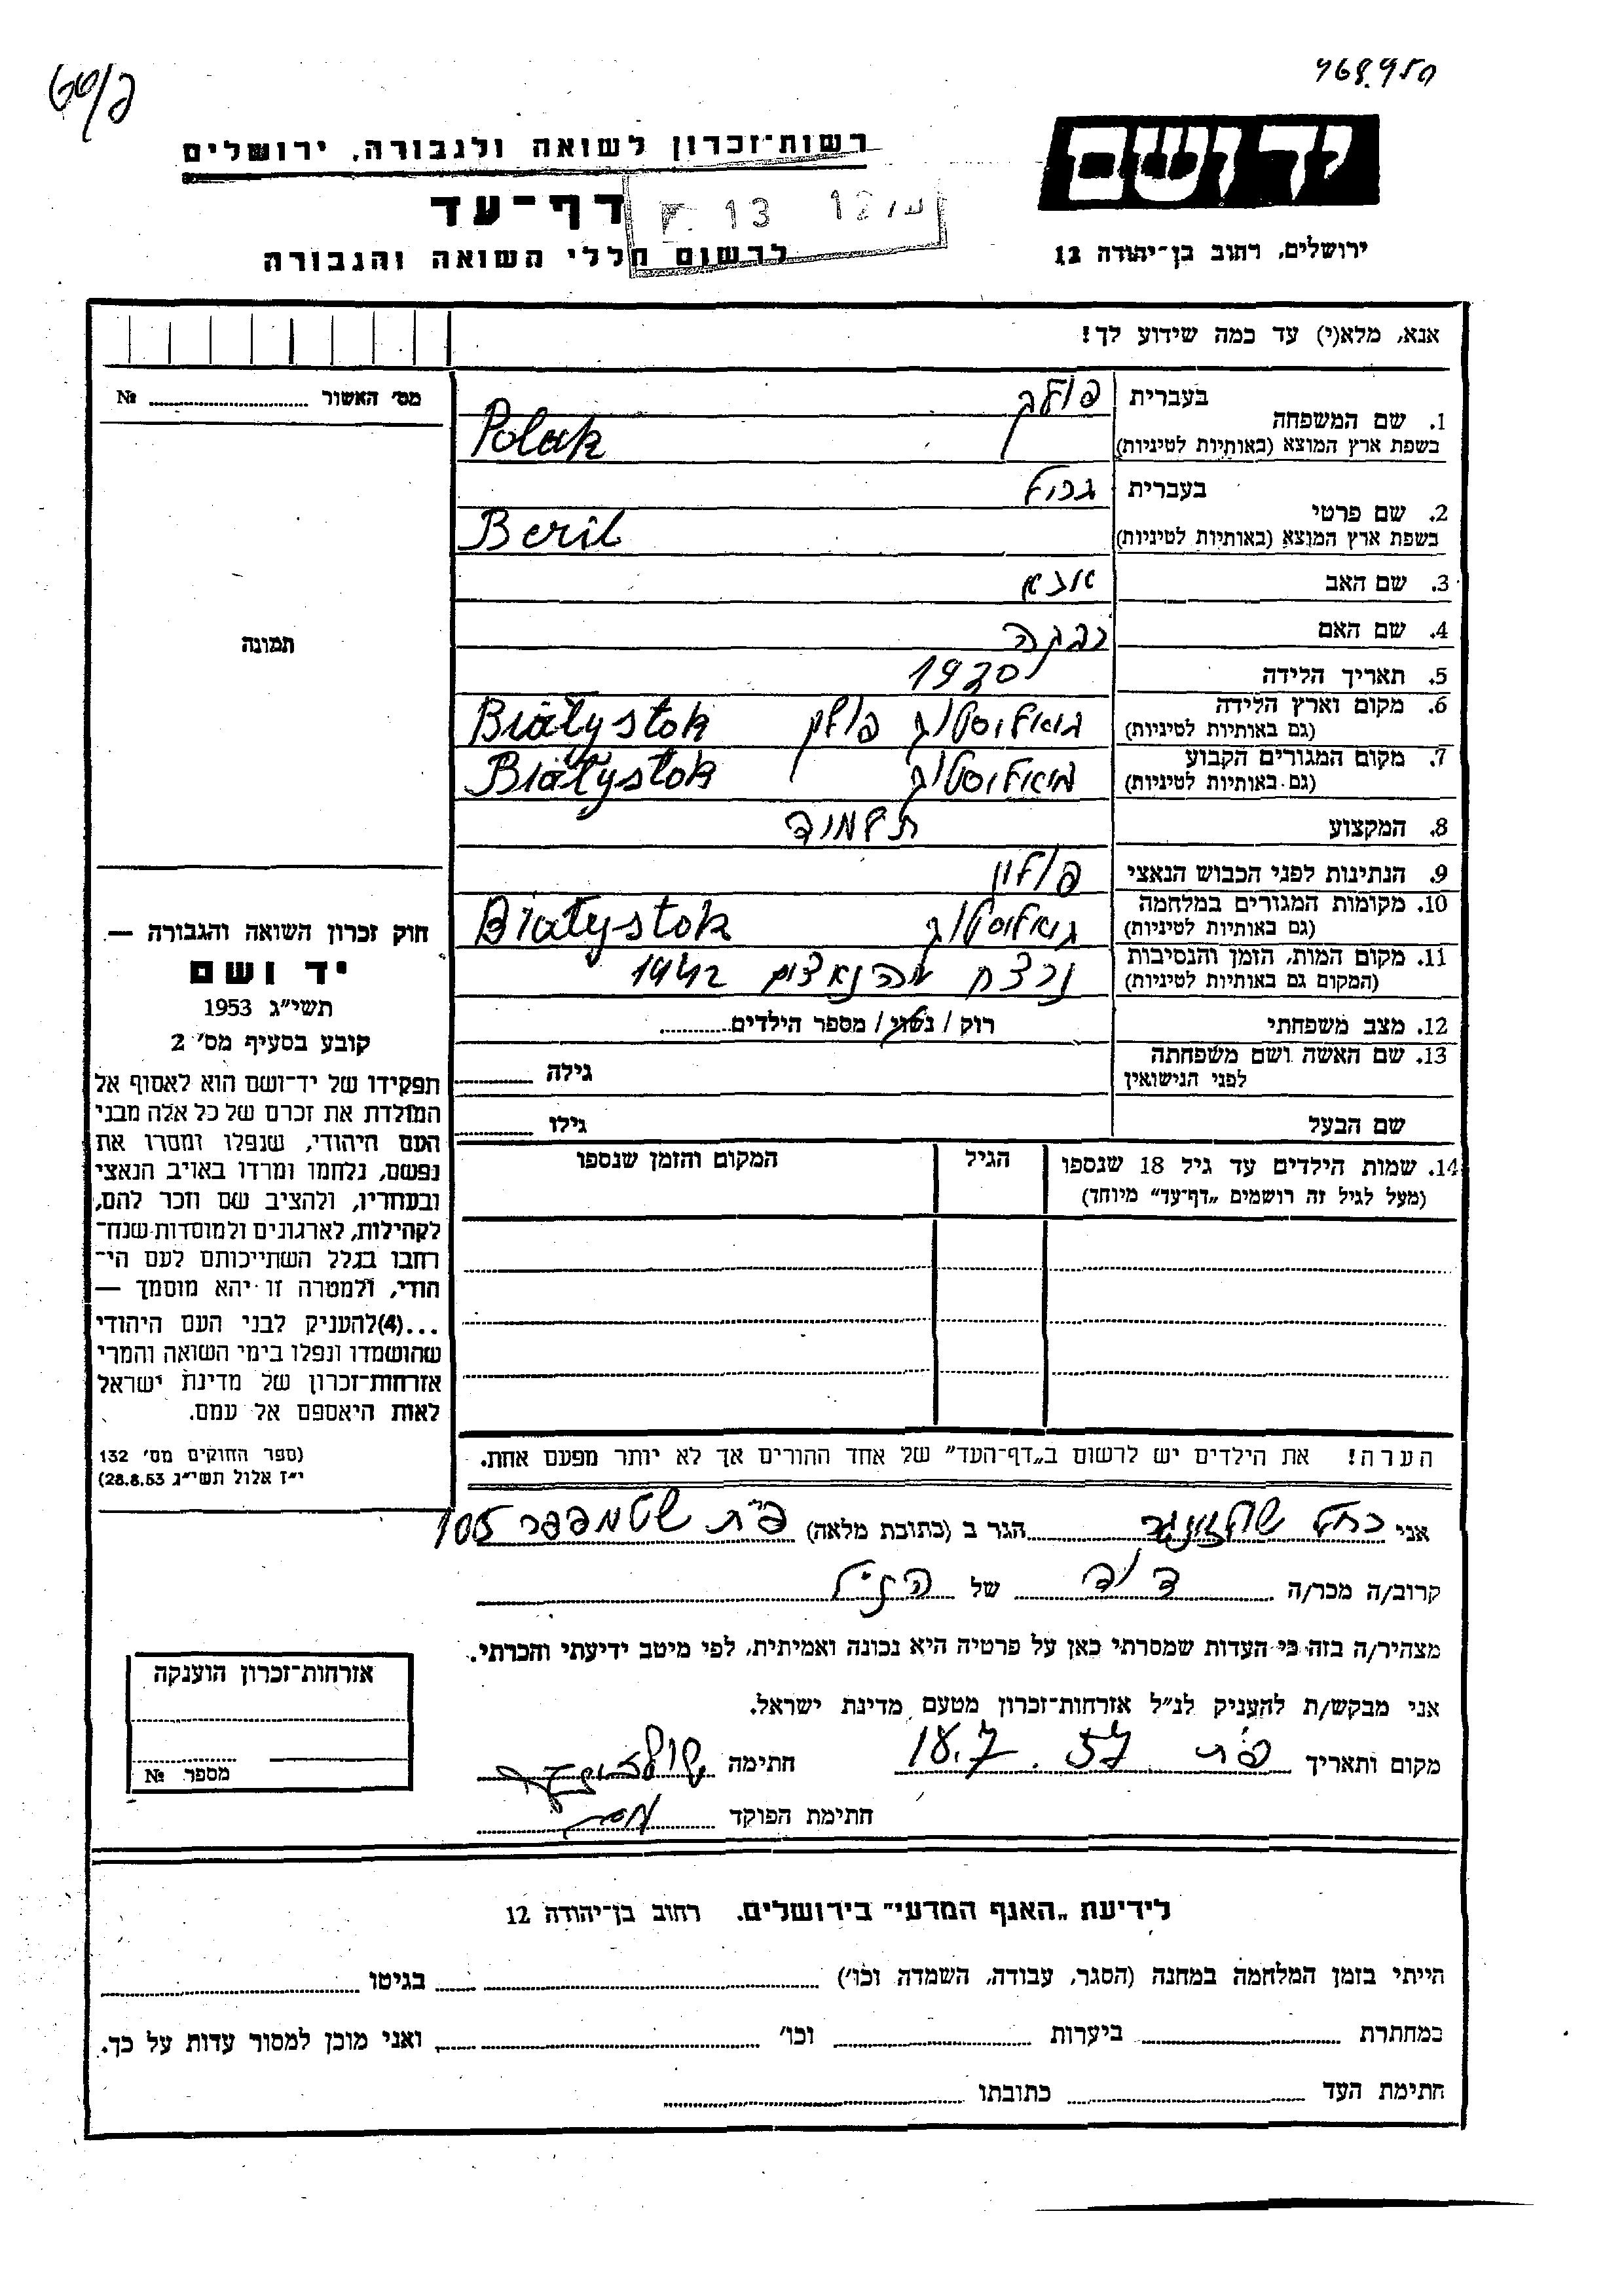 רשות־זכרון לשואה ולגבורה, ירושלים
יד ושם
דף־עד
13 12
לרשום חללי השואה והגבורה
ירושלים, רחוב בן־יהודה 12
אנא, מלא(י) עד כמה שידוע לך!
מס׳ האשור № 
תמונה
1. שם המשפחה בעברית פולק
בשפת ארץ המוצא (באותיות לטיניות) Polak
2. שם פרטי בעברית
בשפת ארץ המוצא (באותיות לטיניות) Beril
3. שם האב
4. שם האם רבקה
5. תאריך הלידה 1930
6. מקום וארץ הלידה (גם באותיות לטיניות) ביאליסטוק פולין Białystok
7. מקום המגורים הקבוע (גם באותיות לטיניות) ביאליסטוק Białystok
8. המקצוע תלמוד
9. הנתינות לפני הכבוש הנאצי פולין
10. מקומות המגורים במלחמה (גם באותיות לטיניות) ביאליסטוק Białystok
11. מקום המות, הזמן והנסיבות (המקום גם באותיות לטיניות) נרצח מהנאצים 1942
12. מצב משפחתי רוק / נשוי / מספר הילדים
13. שם האשה ושם משפחתה לפני הנישואין גילה
שם הבעל גילו
14. שמות הילדים עד גיל 18 שנספו הגיל המקום והזמן שנספו
(מעל לגיל זה רושמים „דף־עד” מיוחד)
הערה! את הילדים יש לרשום ב„דף־העד” של אחד ההורים אך לא יותר מפעם אחת.
חוק זכרון השואה והגבורה —
יד ושם
תשי״ג 1953
קובע בסעיף מס׳ 2
תפקידו של יד־ושם הוא לאסוף אל
המולדת את זכרם של כל אלה מבני
העם היהודי, שנפלו ומסרו את
נפשם, נלחמו ומרדו באויב הנאצי
ובעוזריו, ולהציב שם וזכר להם,
לקהילות, לארגונים ולמוסדות שנח־
רחבו בגלל השתייכותם לעם הי־
הודי, ולמטרה זו יהא מוסמך —
...(4)להעניק לבני העם היהודי
שהושמדו ונפלו בימי השואה והמרי
אזרחות־זכרון של מדינת ישראל
לאות היאספם אל עמם.
(ספר החוקים מס׳ 132
י״ז אלול תשי״ג 28.8.53)
אני רחל הגר ב (כתובת מלאה) פ״ת שטמפפר 105
קרוב/ה מכר/ה דוד של הנ״ל
מצהיר/ה בזה כי העדות שמסרתי כאן על פרטיה היא נכונה ואמיתית, לפי מיטב ידיעתי והכרתי.
אני מבקש/ת להעניק לנ״ל אזרחות־זכרון מטעם מדינת ישראל.
מקום ותאריך פ״ת 18.7.57 חתימה
חתימת הפוקד
אזרחות־זכרון הוענקה
מספר №
לידיעת „האנף המדעי” בירושלים. רחוב בן־יהודה 12
הייתי בזמן המלחמה במחנה (הסגר, עבודה, השמדה וכו׳) בגיטו
במחתרת ביערות וכו׳ ואני מוכן למסור עדות על כך.
חתימת העד כתובתו